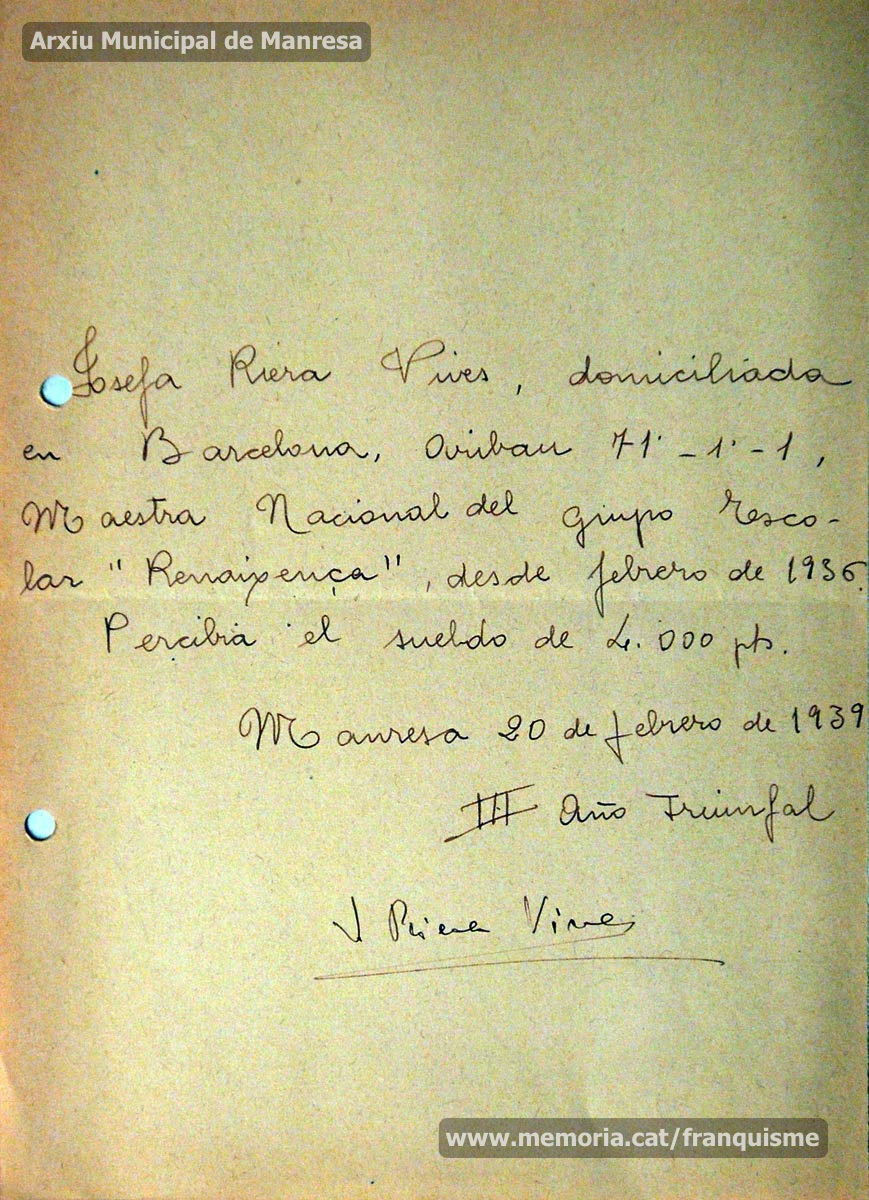 Arxiu Municipal de Manresa
Josefa Riera Vives, domiciliada
en Barcelona, Aribau 71-1-1,
Maestra Nacional del grupo Esco-
lar "Renaixença", desde febrero de 1936.
Percibía el sueldo de 4.000 pts.
Manresa 20 de febrero de 1939
III Año Triunfal
J Riera Vives
www.memoria.cat/franquisme